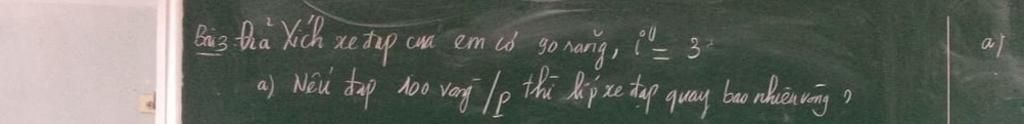 Bài 3 Đĩa Xích xe đạp của em có 90 răng, i = 3 a)
a) Nếu đạp 100 vòng/p thì líp xe đạp quay bao nhiêu vòng ?